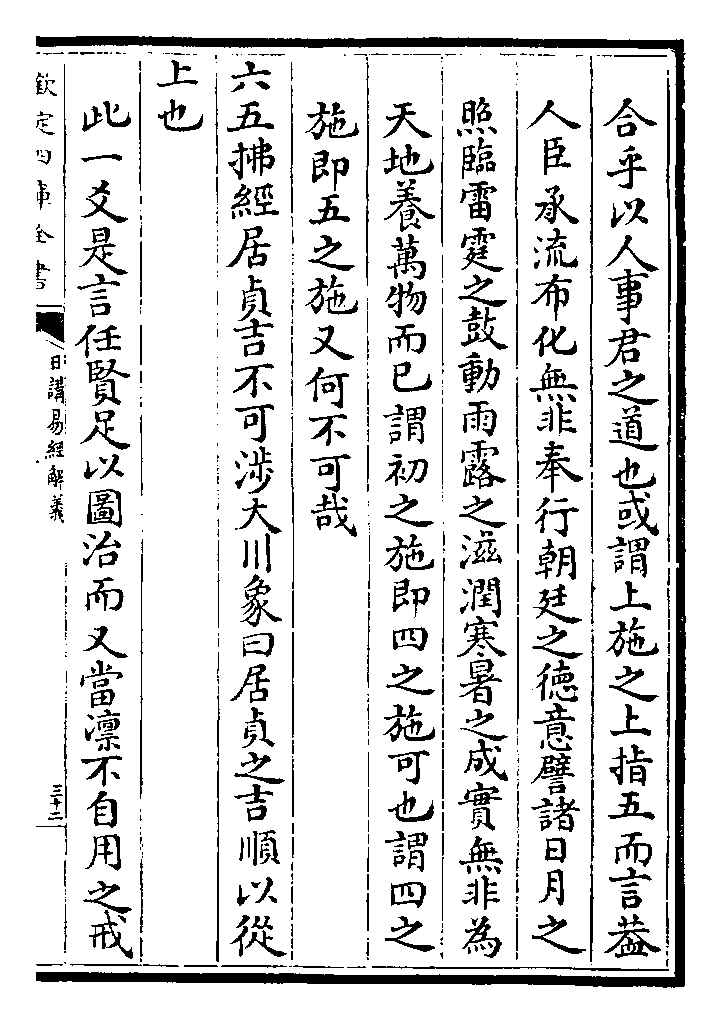 合乎以人事君之道也或謂上施之上指五而言葢
人臣承流布化無非奉行朝廷之徳意譬諸日月之
照臨雷霆之鼓動雨露之滋潤寒暑之成實無非為
天地養萬物而已謂初之施即四之施可也謂四之
施即五之施又何不可哉
六五拂經居貞吉不可渉大川象曰居貞之吉順以從
上也
此一爻是言任賢足以圖治而又當凛不自用之戒
欽定四庫全書
日講易經解義
三十二